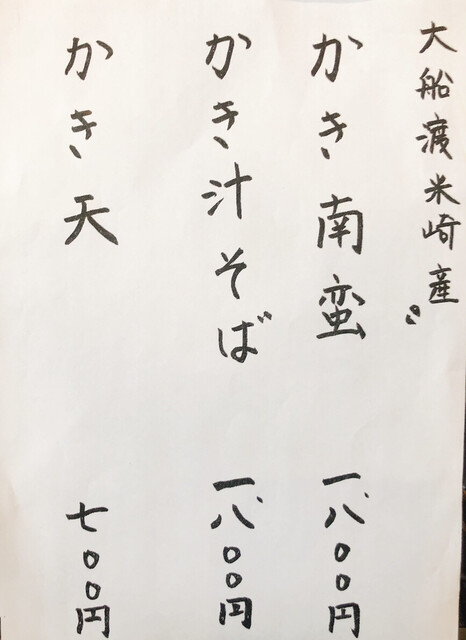 大船渡米崎産
かき南蛮 一八〇〇円
かき汁そば 一八〇〇円
かき天 七〇〇円